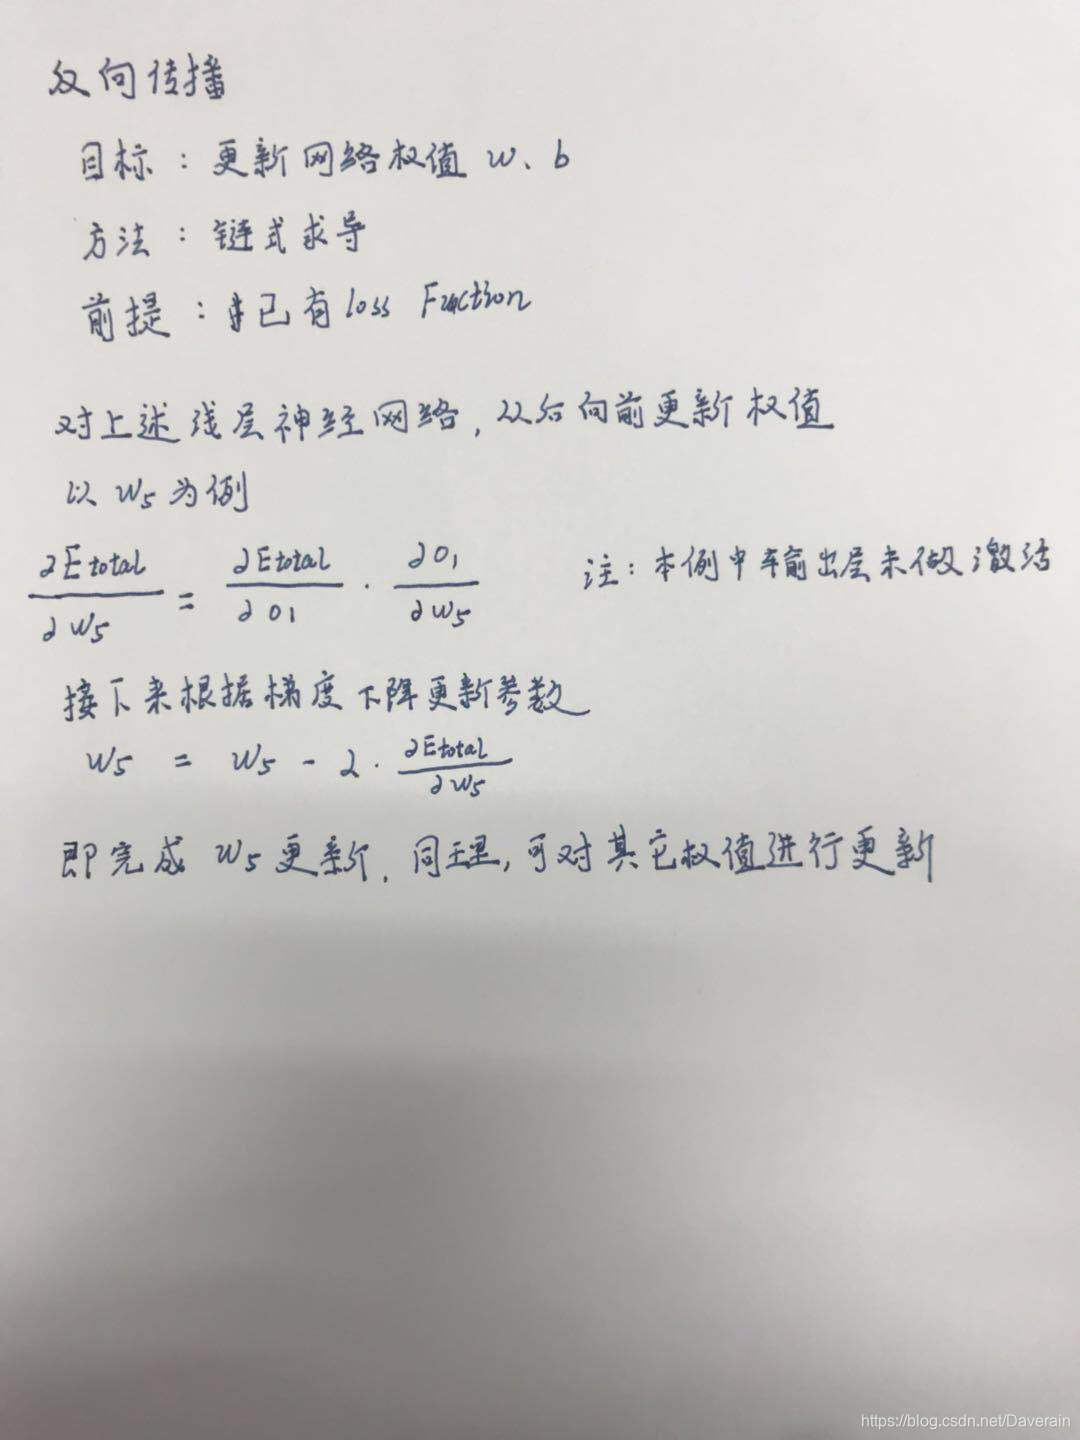 反向传播
目标：更新网络权值 w、b
方法：链式求导
前提：已有loss Fuction
对上述浅层神经网络，从后向前更新权值
以 w₅ 为例
∂Etotal/∂w₅ = ∂Etotal/∂o₁ · ∂o₁/∂w₅ 注：本例中输出层未做激活
接下来根据梯度下降更新参数
w₅ = w₅ - 2 · ∂Etotal/∂w₅
即完成 w₅ 更新．同理，可对其它权值进行更新
https://blog.csdn.net/Daverain